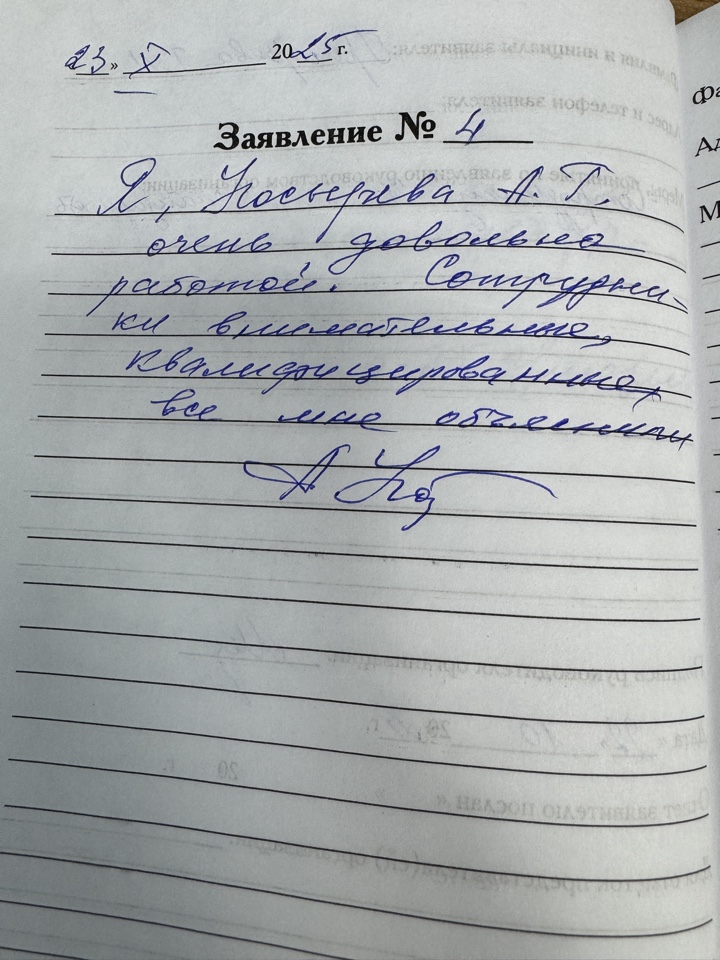 23 » X 2025 г.
Заявление № 4
Я, Косырева А. Г.
очень довольна
работой. Сотрудни-
ки внимательные,
квалифицированные,
все мне объяснили
А Кос